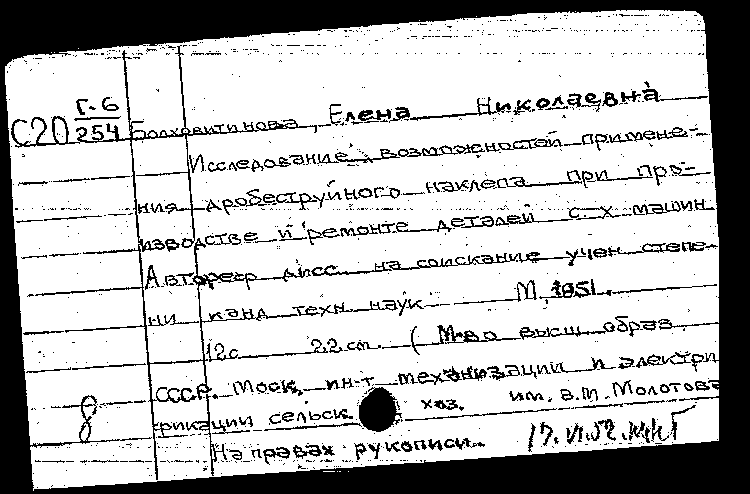 Г-6
С20 254 Болховитинова, Елена Николаевна
Исследование возможностей примене-
ния дробеструйного наклепа при про-
изводстве и ремонте деталей с-х машин
Автореф дисс. на соискание учен степе-
ни канд техн. наук. М, 1951.
12с 22 см. (М-во высш. образ.
СССР. Моск. ин-т механизации и электри
фикации сельск. хоз. им. В.М. Молотова
8
На правах рукописи. 17.VI.52.